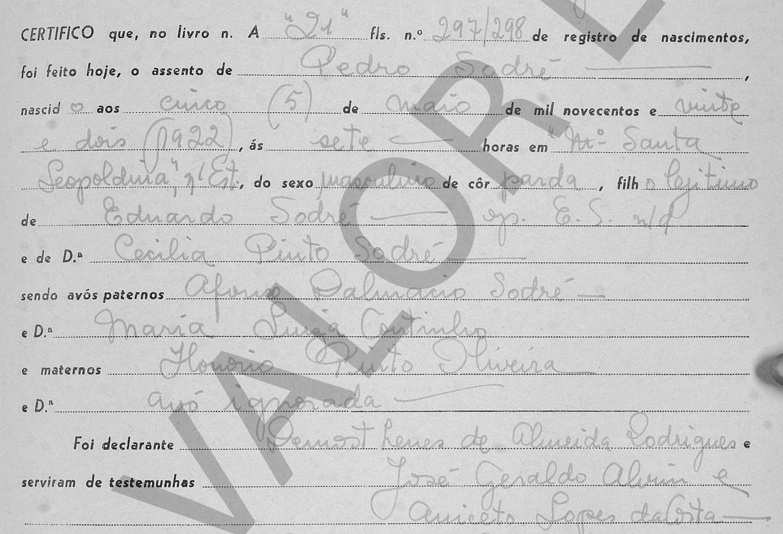 CERTIFICO que, no livro n. A "21" fls. n.º 297/298 de registro de nascimentos,
foi feito hoje, o assento de Pedro Sodré,
nascido aos cinco (5) de maio de mil novecentos e vinte
e dois (1922), ás sete horas em "Mº Santa
Leopoldina", n/Est., do sexo masculino de côr parda, filho legitimo
de Eduardo Sodré E.S. n/d
e de D.ª Cecilia Pinto Sodré
sendo avós paternos Afonso Dalmácio Sodré
e D.ª Maria Luiza Coutinho
e maternos Honorio Pinto Oliveira
e D.ª avó ignorada
Foi declarante Demosthenes de Almeida Rodrigues e
serviram de testemunhas José Geraldo Alvim e
Aniceto Lopes da Costa
VALOR